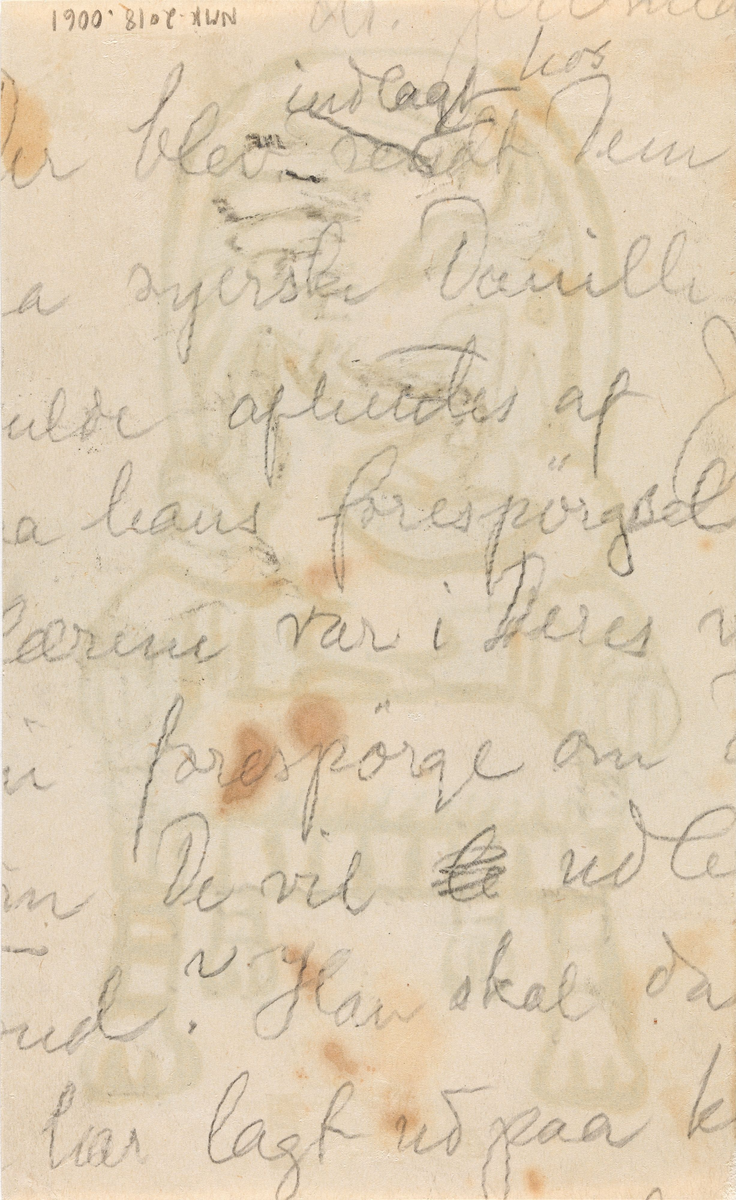 NMK.2018.0061
indlagt hos
er blev sendt Dem
a syerske Vanilli
ulde afhentes af
a hans forespörgsel
læreni var i Deres v
forespörge om
De vil udle
ud? Han skal da
har lagt ud paa k